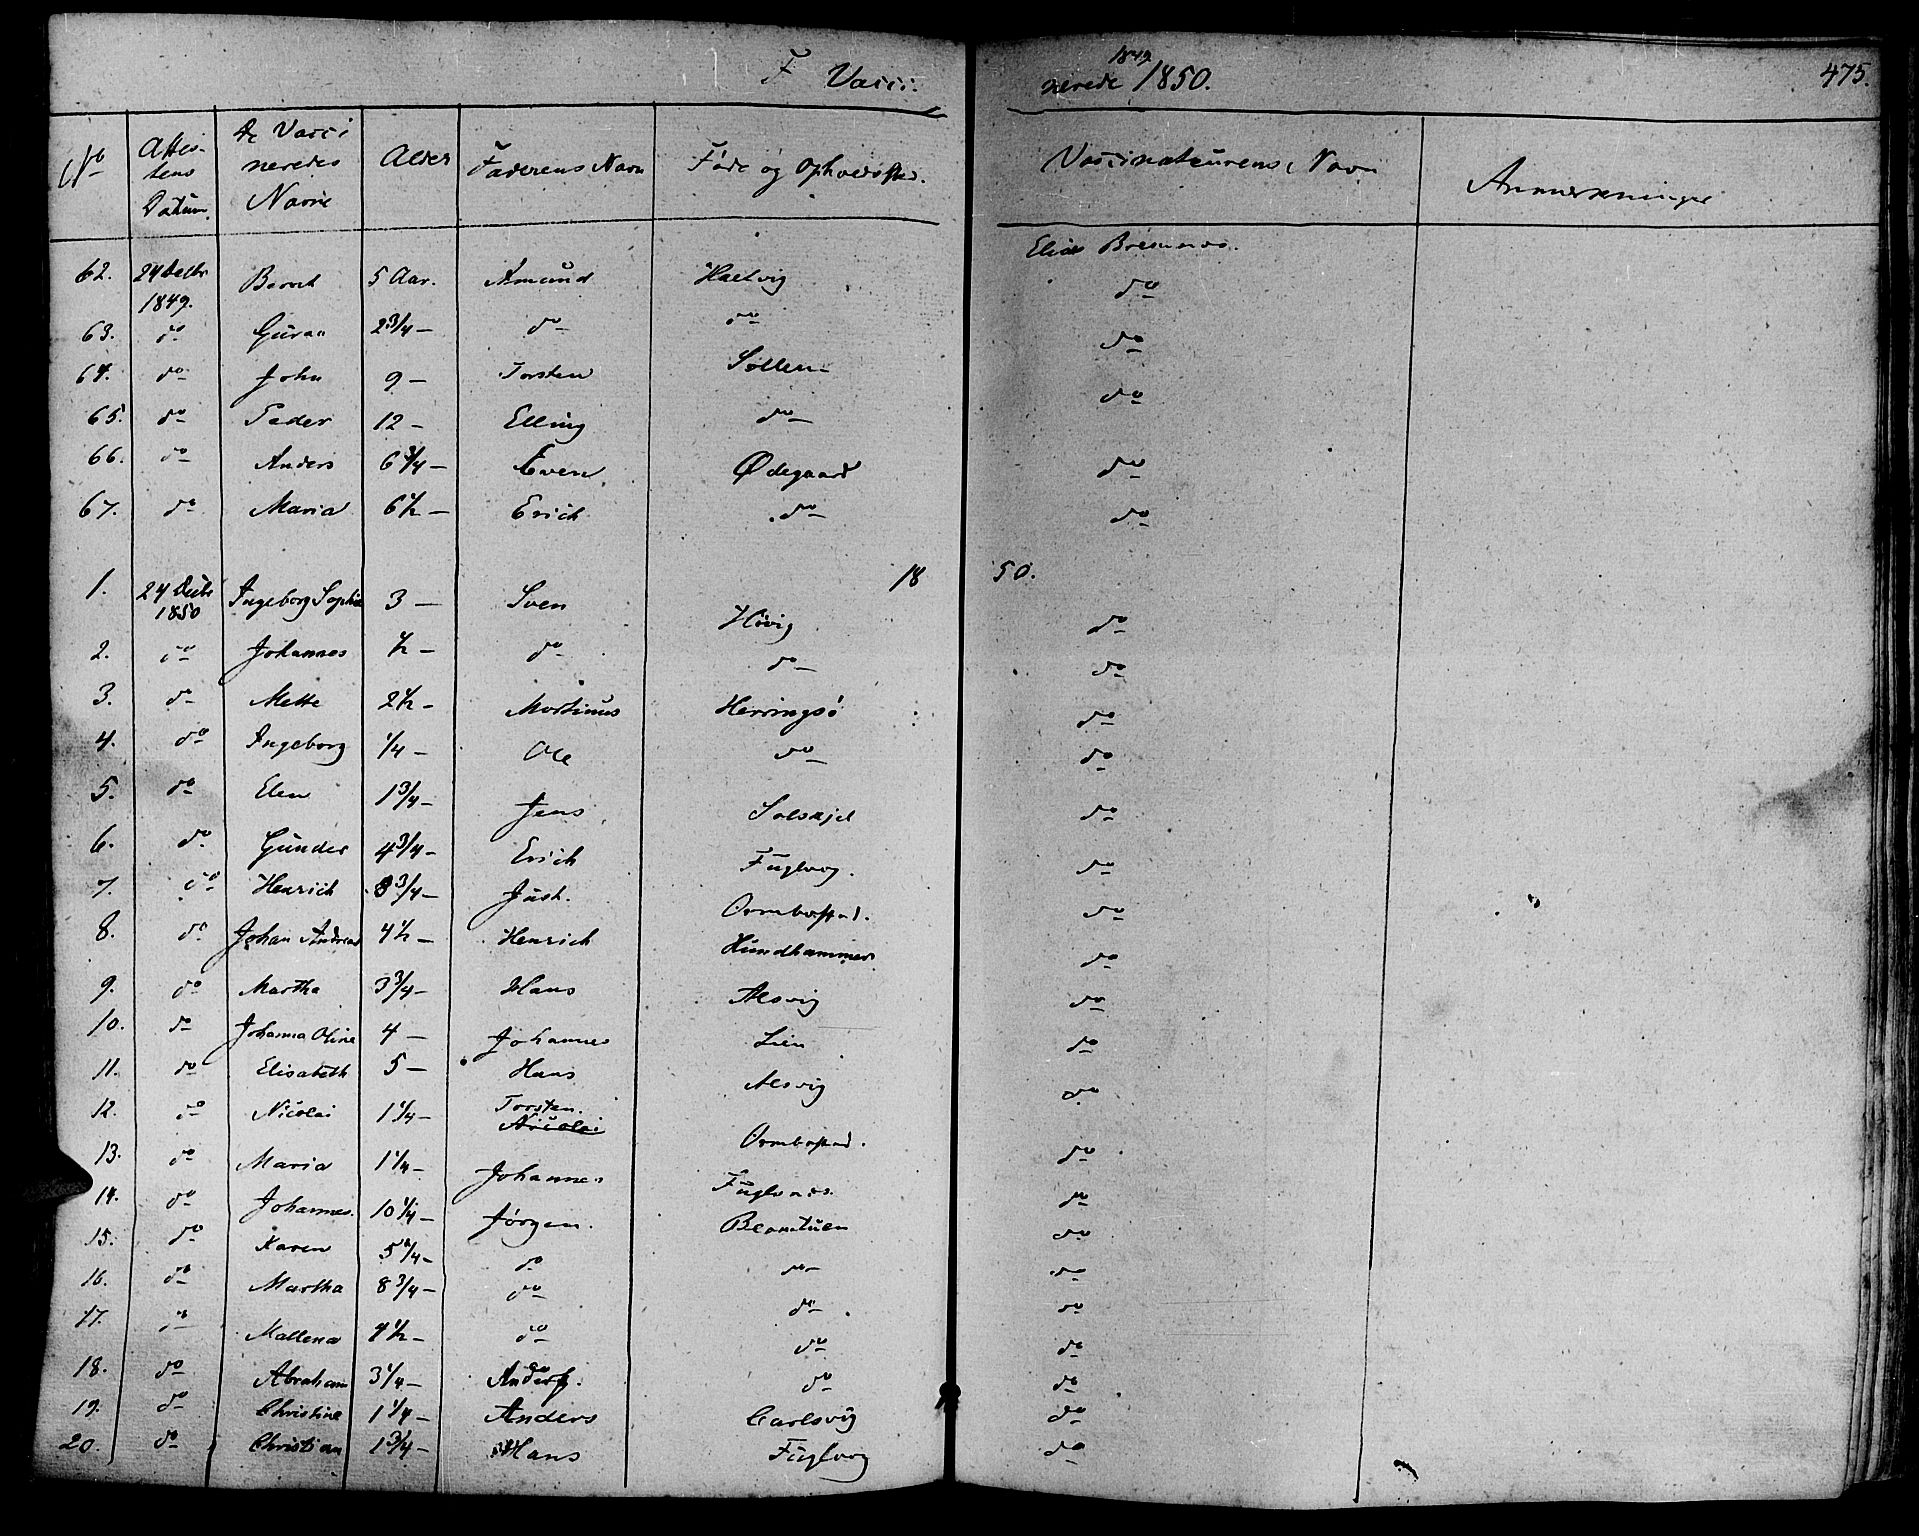 F Vacci- nerede 1849 1850. 475.
No Attestens Datum De Vaccineredes Navne Alder Faderens Navn Føde og Opholdssted. Vaccinateurens Navn Anmerkninger
62. 24 Decbr 1849. Bernt 5 Aar. Amund Hallvig Elias Bremnes.
do
63. do Guran 2 3/4 - do do do
64. do John 9 - Torsten Sollien do
65. do Peder 12 - Elling do
66. do Anders 6 3/4 - Even Ødegaard do
67. do Maria 6 1/2 - Erich do do
1850.
1. 24 Decbr 1850 Ingeborg Sophie 3 - Sven Høvig do
2. do Johannes 1/2 - do do do
3. do Mette 2 1/2 - Mortinus Herringsø do
4. do Ingeborg 1/4 - Ole do do
5. do Elen 1 3/4 - Jens Solskjel do
6. do Gunder 4 3/4 - Erich Fuglvog. do
7. do Henrich 8 3/4 - Just. Ormbostad. do
8. do Johan Andreas 4 1/2 - Henrich Hundhammer do
9. do Martha 3 3/4 - Hans Alsvig do
10. do Johanna Oline 4 - Johannes Lien do
11. do Elisabeth 5 - Hans Alsvig do
12. do Nicolai 1 1/4 - Torsten. Nicolai Ormbostad. do
13. do Maria 1 1/4 - Johannes Fuglvog. do
14. do Johannes. 10 1/4 - Jørgen. do
15. do Karen 5 1/4 - do do do
16. do Martha 8 3/4 - do do do
17. do Mallena 4 1/2 - do do do
18. do Abraham 3 1/4 - do do
19. do Christine 1 1/4 - Anders Carlsvig do
20. do Christian 1 3/4 - Hans Fuglvog do